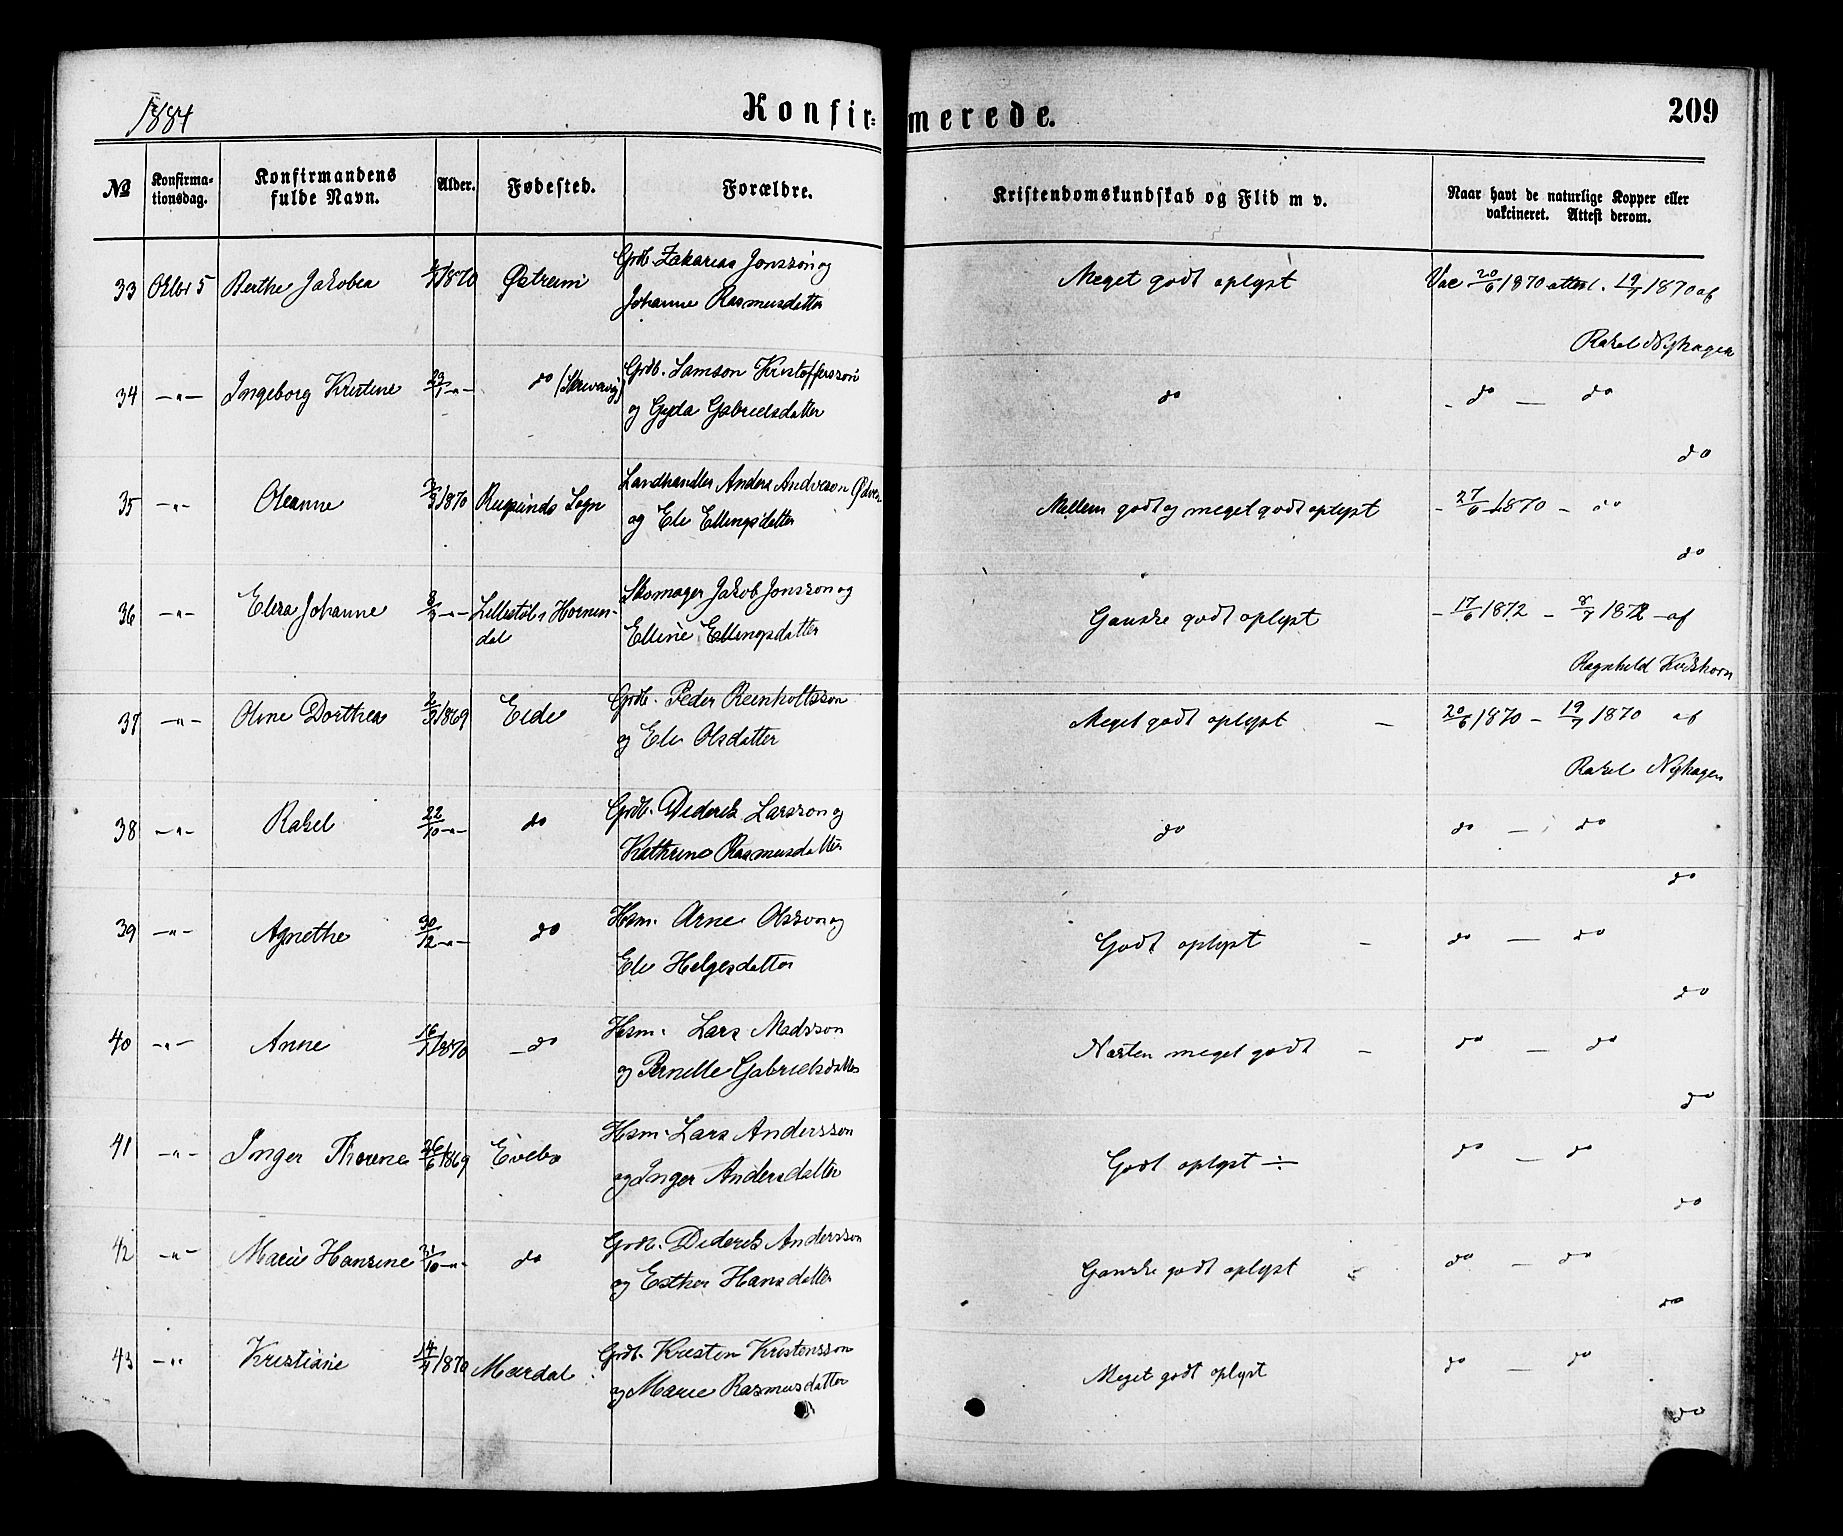 1884
Konfirmerede.
209
No
Konfirmationsdag.
Konfirmandens fulde Navn.
Alder.
Fødested.
Forældre.
Kristendomskundskab og Flid m v.
Naar havt de naturlige Kopper eller vakcineret. Attest derom.
33 Oktbr 5 Berthe Jakobea /1870 Østreim Grdb. Zakarias Jonsson og Meget godt oplyst Vac 20/6 1870 attest. 19/7 1870 af
Johanne Rasmusdatter
Rakel Nyhagen
34 -"- Ingeborg Kristine 29/1 -"- do Grdb. Samson Kristoffersson do - do — do
og Gyda Gabrielsdatter
do
35 -"- Oleanne /1870 Sogn Landhandler Anders Andersson Mellem godt og meget godt oplyst - 27/6 1870 - do
og Eli Ellingsdatter
do
36 -"- Elisa Johanne -"- Hornindal Skomager Jakob Jonsson og Ganske godt oplyst - 17/6 1872 - 8/7 1872 - af
Elline Ellingsdatter
Ragnhild
37 -"- Oline Dorthea /1869 Eide Grdb. Peder Reinholtsson Meget godt oplyst - 20/6 1870 - 19/7 1870 af
og Eli Olsdatter
Rakel Nyhagen
38 -"- Rakel 22/10 -"- do Grdb. Diderik Larsson og do do — do
Kathrine Rasmusdatter
do
39 -"- Agnethe 30/12 -"- do Hsm. Arne Olsson og Godt oplyst - do — do
Eli Helgesdatter
do
40 -"- Anne 16/1 1870 - do Hsm. Lars Madsson Næsten meget godt - do — do
og Pernelle Gabrielsdatter
do
41 -"- Inger Thorine 26/6 1869 Evebø Hsm. Lars Andersson Godt oplyst ÷ do — do
og Inger Andersdatter
do
42 -"- Marie Hansine /10 -"- do Grdb. Diderik Andersson Ganske godt oplyst do — do
og Esther Hansdatter
do
43 -"- Kristiane 14/ 1870 Mardal Grdb. Kristen Kristensson Meget godt oplyst do — do
og Marie Rasmusdatter
do